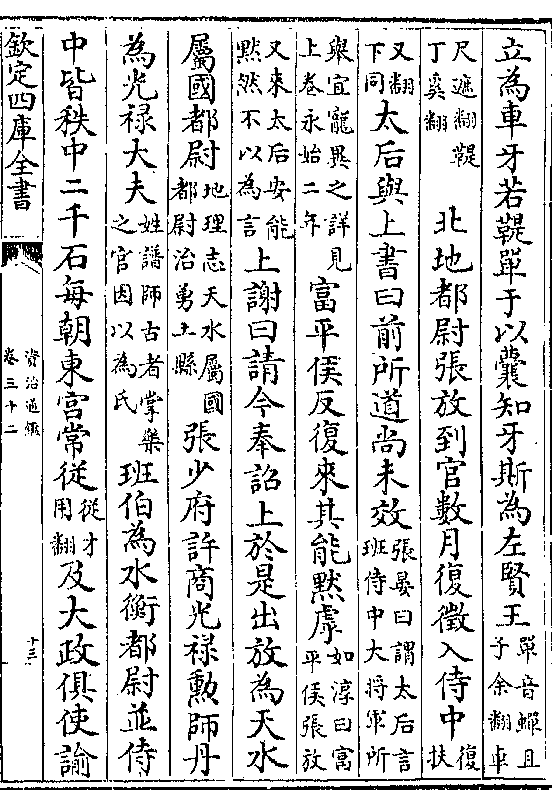 立為車牙若鞮單于以囊知牙斯為左賢王單音蟬且子余翻車
尺遮翻鞮丁奚翻 北地都尉張放到官數月復徵入侍中復扶
又翻下同太后與上書曰前所道尚未效張晏曰謂太后言班侍中大將軍所
舉宜寵異之詳見上卷永始二年富平侯反復來其能黙虖如淳曰富平侯張放
又來太后安能黙然不以為言上謝曰請今奉詔上於是出放為天水
屬國都尉地理志天水屬國都尉治勇土縣張少府許商光禄勲師丹
為光禄大夫姓譜師古者掌樂之官因以為氏班伯為水衡都尉並侍
中皆秩中二千石每朝東宫常從從才用翻及大政俱使諭
欽定四庫全書
資治通鑑
卷三十二
十三